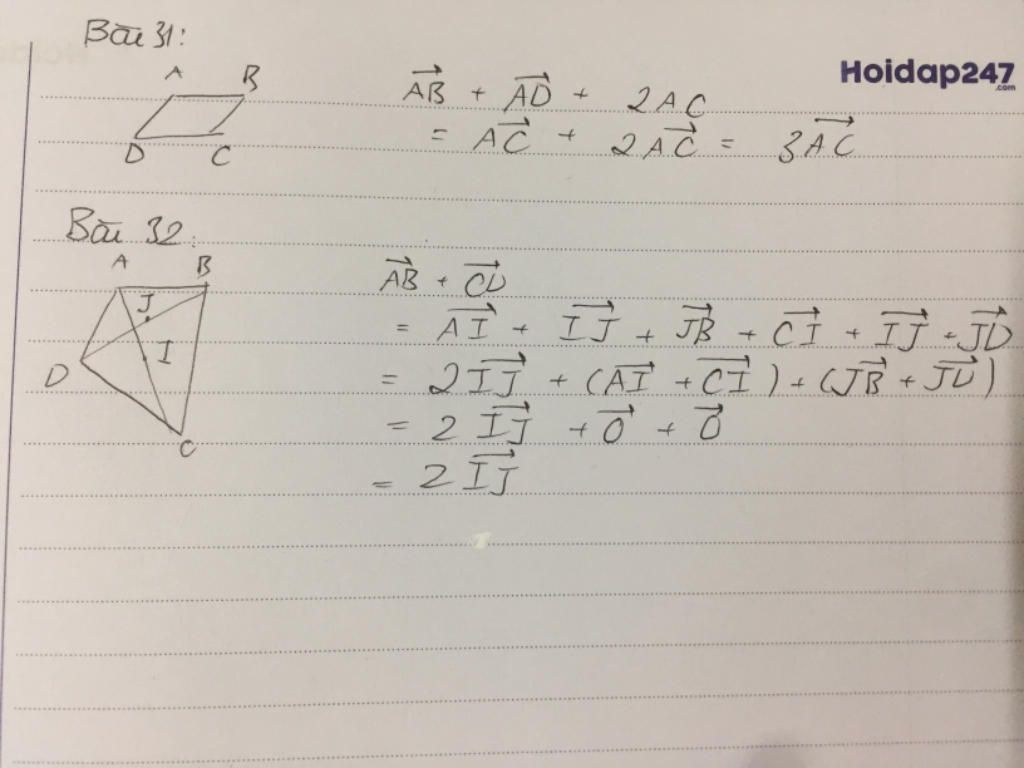 Bài 31:
Hoidap247.com
A B
D C
$\overrightarrow{AB} + \overrightarrow{AD} + 2AC$
$= \overrightarrow{AC} + 2\overrightarrow{AC} = 3\overrightarrow{AC}$
Bài 32:
A B
J
I
D
C
$\overrightarrow{AB} + \overrightarrow{CD}$
$= \overrightarrow{AI} + \overrightarrow{IJ} + \overrightarrow{JB} + \overrightarrow{CI} + \overrightarrow{IJ} + \overrightarrow{JD}$
$= 2\overrightarrow{IJ} + (\overrightarrow{AI} + \overrightarrow{CI}) + (\overrightarrow{JB} + \overrightarrow{JD})$
$= 2\overrightarrow{IJ} + \overrightarrow{O} + \overrightarrow{O}$
$= 2\overrightarrow{IJ}$